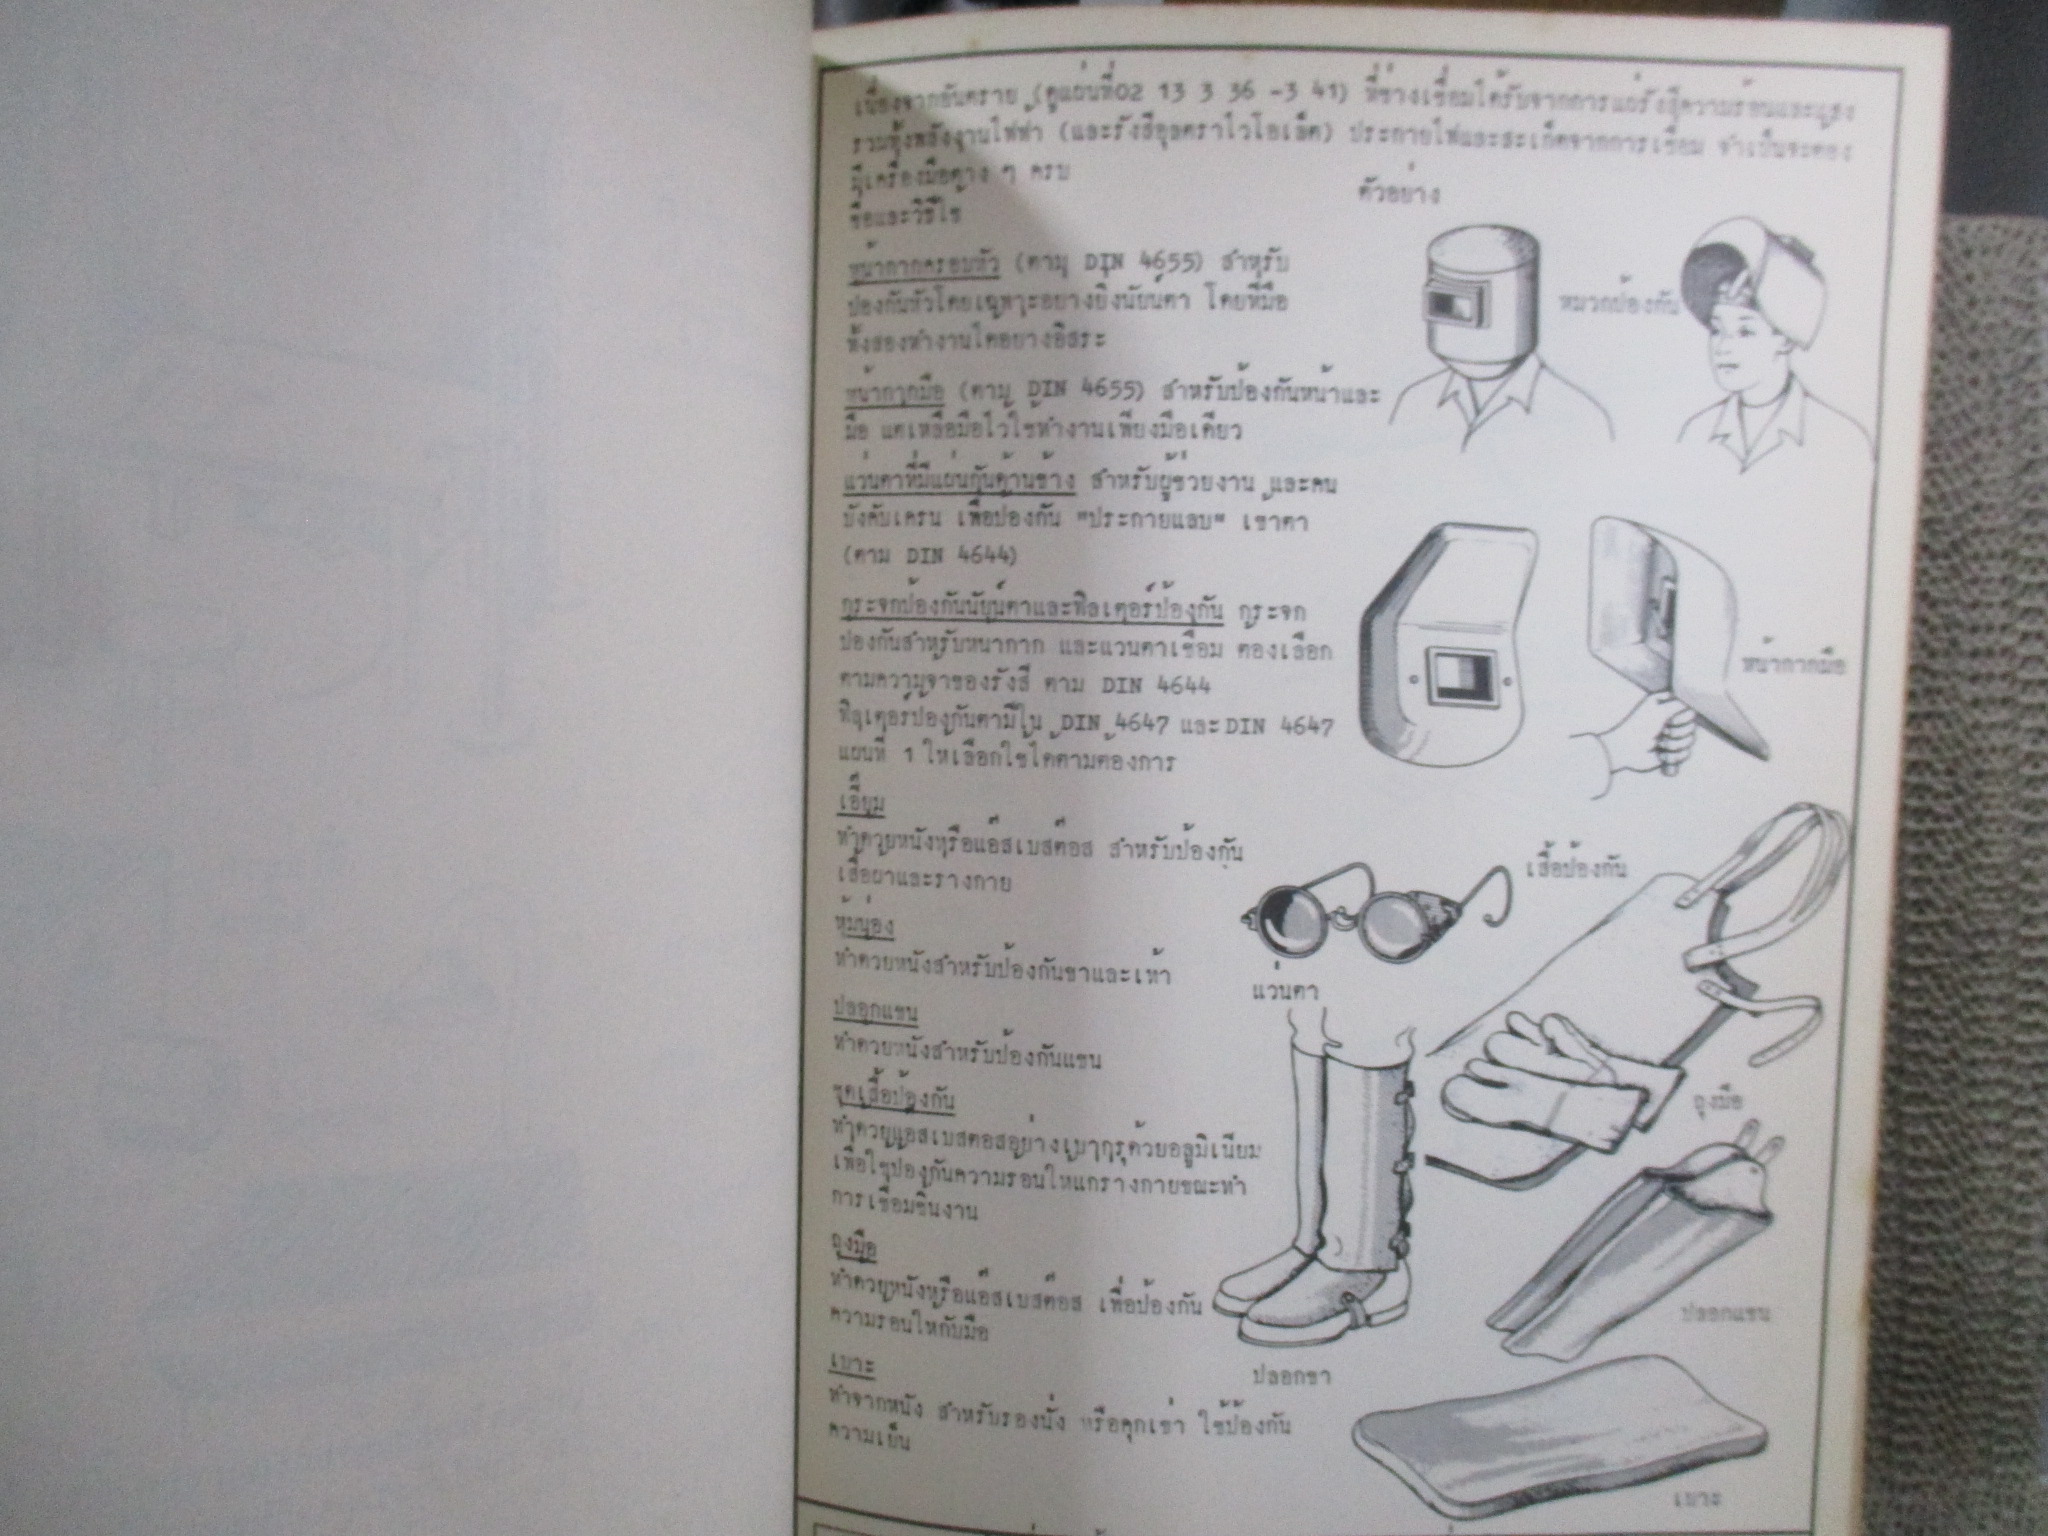 เนื่องจากอันตราย (ดูแผ่นที่02 13 3 36 -3 41) ที่ช่างเชื่อมได้รับจากการแผ่รังสีความร้อนและแสง
รวมทั้งพลังงานไฟฟ้า (และรังสีอุลตราไวโอเล็ต) ประกายไฟและสะเก็ดจากการเชื่อม จำเป็นจะต้อง
มีเครื่องมือต่าง ๆ ครบ
ชื่อและวิธีใช้
ตัวอย่าง
หน้ากากครอบหัว (ตาม DIN 4655) สำหรับ
ป้องกันหัวโดยเฉพาะอย่างยิ่งนัยน์ตา โดยที่มือ
ทั้งสองทำงานได้อย่างอิสระ
หมวกป้องกัน
หน้ากากมือ (ตาม DIN 4655) สำหรับป้องกันหน้าและ
มือ แต่เหลือมือไว้ใช้ทำงานเพียงมือเดียว
แว่นตาที่มีแผ่นกันด้านข้าง สำหรับผู้ช่วยงาน และคน
บังคับเครน เพื่อป้องกัน "ประกายแลบ" เข้าตา
(ตาม DIN 4644)
กระจกป้องกันนัยน์ตาและฟิลเตอร์ป้องกัน กระจก
ป้องกันสำหรับหน้ากาก และแว่นตาเชื่อม ต้องเลือก
ตามความจ้าของรังสี ตาม DIN 4644
ฟิลเตอร์ป้องกันตามีใน DIN 4647 และ DIN 4647
แผ่นที่ 1 ให้เลือกใช้ได้ตามต้องการ
หน้ากากมือ
เอี๊ยม
ทำด้วยหนังหรือแอ๊สเบสต๊อส สำหรับป้องกัน
เสื้อผ้าและร่างกาย
เสื้อป้องกัน
หุ้มน่อง
ทำด้วยหนังสำหรับป้องกันขาและเท้า
แว่นตา
ปลอกแขน
ทำด้วยหนังสำหรับป้องกันแขน
ชุดเสื้อป้องกัน
ทำด้วยแอ๊สเบสตอสอย่างเบากรุด้วยอลูมิเนียม
เพื่อใช้ป้องกันความร้อนให้แก่ร่างกายขณะทำ
การเชื่อมชิ้นงาน
ถุงมือ
ถุงมือ
ทำด้วยหนังหรือแอ๊สเบสต๊อส เพื่อป้องกัน
ความร้อนให้กับมือ
ปลอกแขน
ปลอกขา
เบาะ
ทำจากหนัง สำหรับรองนั่ง หรือคุกเข่า ใช้ป้องกัน
ความเย็น
เบาะ